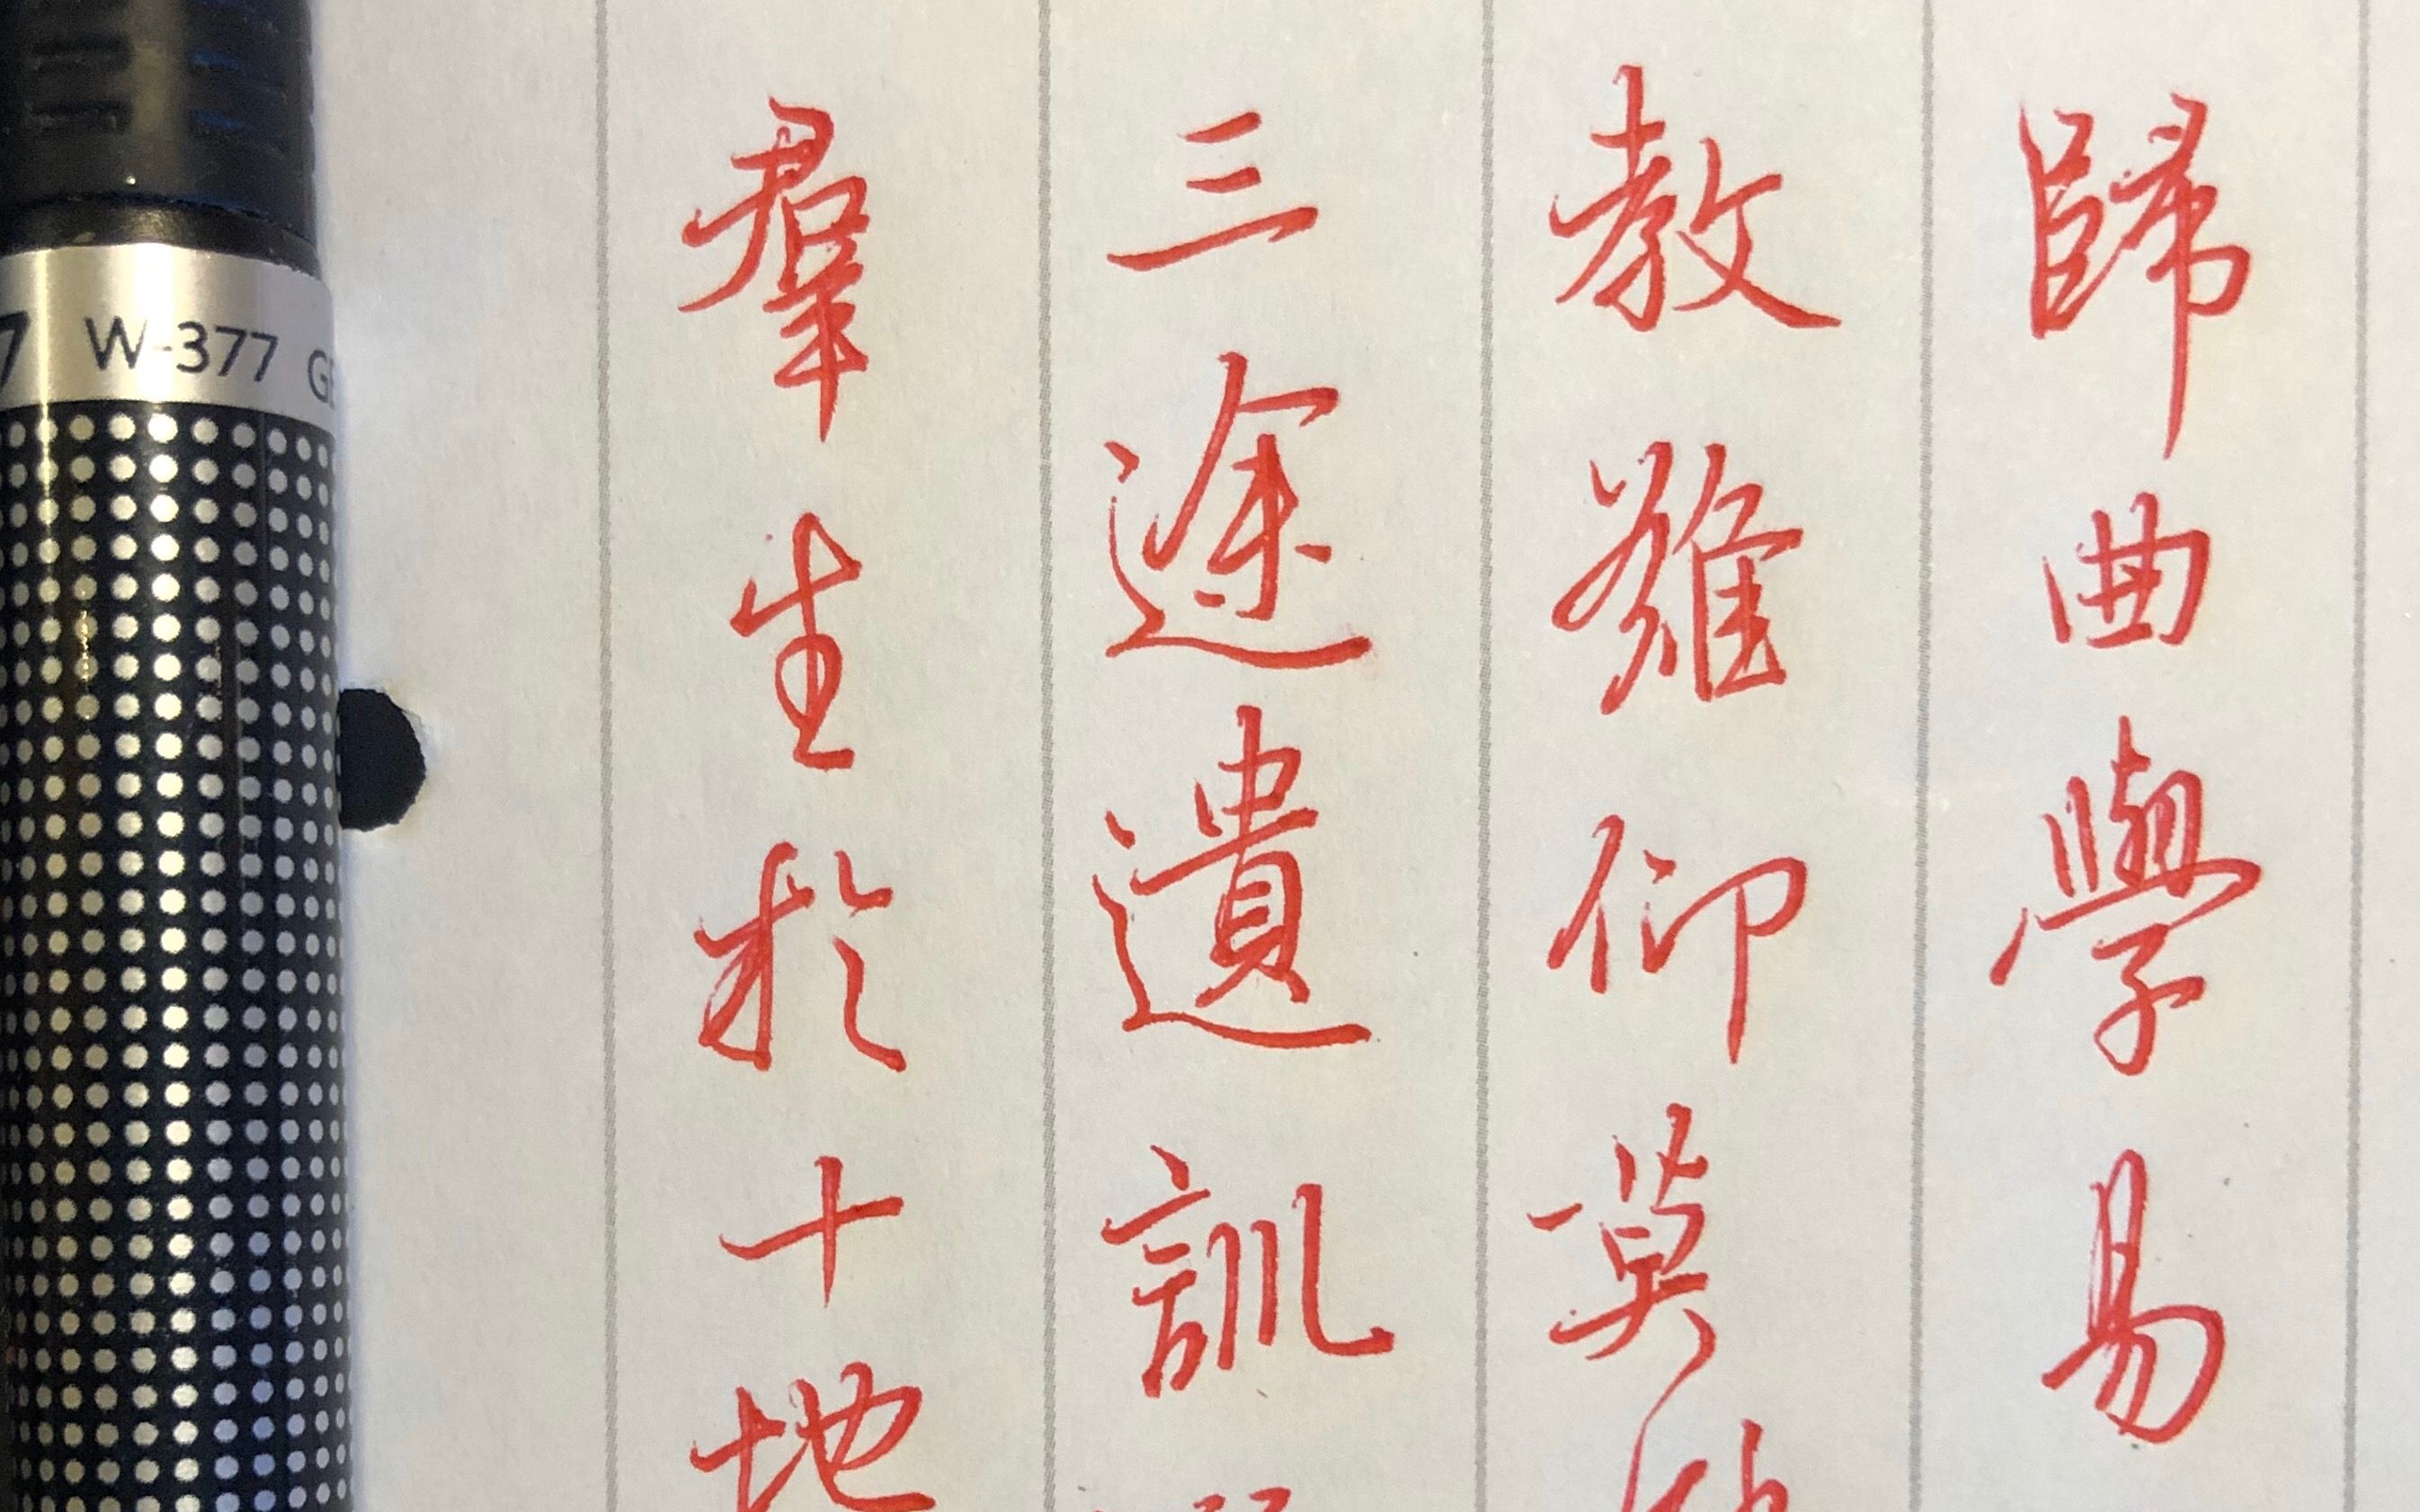 歸曲學易
教難仰莫
三途遺訓
羣生於十地
W-377